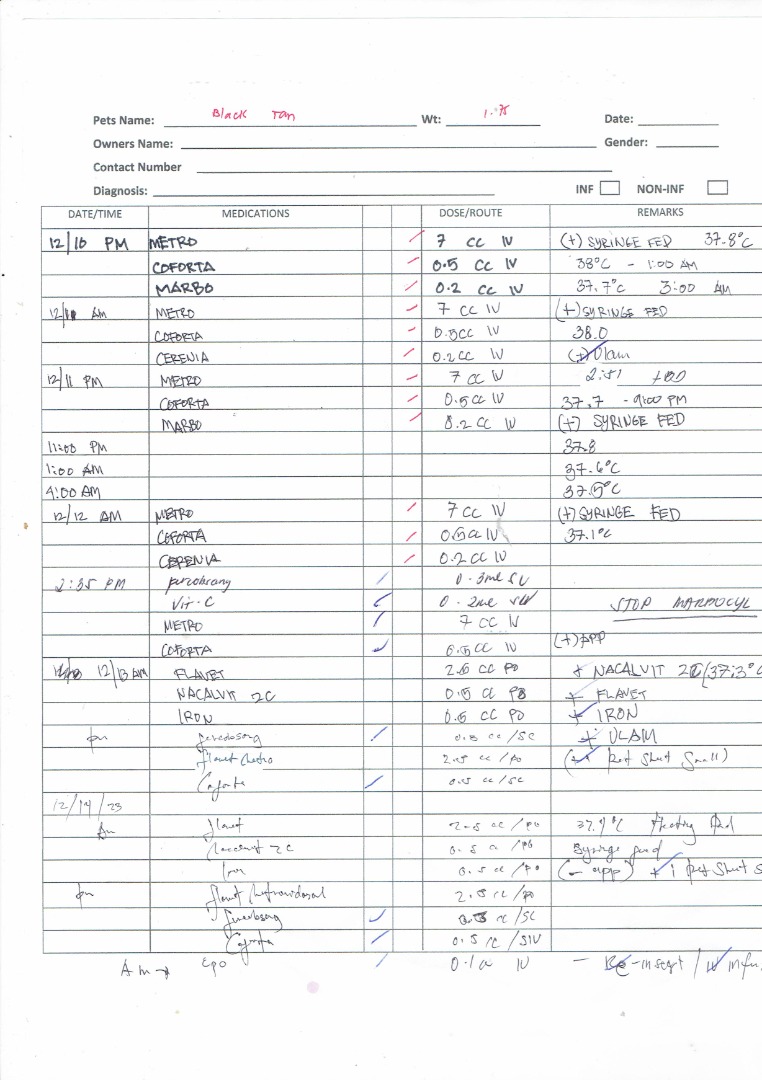 Pets Name: Black Tan Wt: 1.75 Date:
Owners Name: Gender:
Contact Number
Diagnosis: INF NON-INF
DATE/TIME MEDICATIONS DOSE/ROUTE REMARKS
12/10 PM METRO 7 CC IV (+) SYRINGE FED 37.8°C
COFORTA 0.5 CC IV 38°C - 1:00 AM
MARBO 0.2 CC IV 37.7°C 3:00 AM
AM METRO 7 CC IV (+) SYRINGE FED
COFORTA 0.5CC IV 38.0
CERENIA 0.2CC IV (+) Ulam
12/11 PM METRO 7 CC IV
COFORTA 0.5CC IV 37.7 - 9:00 PM
MARBO 0.2 CC IV (+) SYRINGE FED
11:00 PM 37.8
1:00 AM 37.6°C
4:00 AM 37.5°C
12/12 AM METRO 7 CC IV (+) SYRINGE FED
COFORTA 0.5CC IV 37.1°C
CERENIA 0.2CC IV
2:35 PM 0.3ml
Vit-C 0.2ml
METRO 7 CC IV STOP MARBOCYL
COFORTA 0.5 CC IV (+) APP
12/13 AM FLAVET 2.5 CC PO + NACALVIT 2C (37.3°C
NACALVIT 2C 0.5 CC PO + FLAVET
IRON 0.5 CC PO + IRON
pm 0.5 cc /SC + ULAM
Flavet 2.5 cc /PO Pet Sheet Small)
Coforta 0.5 cc /SC
12/14/23
Am Flavet 2.5 cc /PO 37.9°C Heating Pad
2C 0.5 cc /PO Syringe feed
Iron 0.5 cc /PO (- app) + 1 Pet Sheet S
pm Flavet 2.5 cc /PO
0.5 cc /SC
Coforta 0.5 cc /SIV
Am → Epo 0.1 cc IV - Re-insert / IV infu.